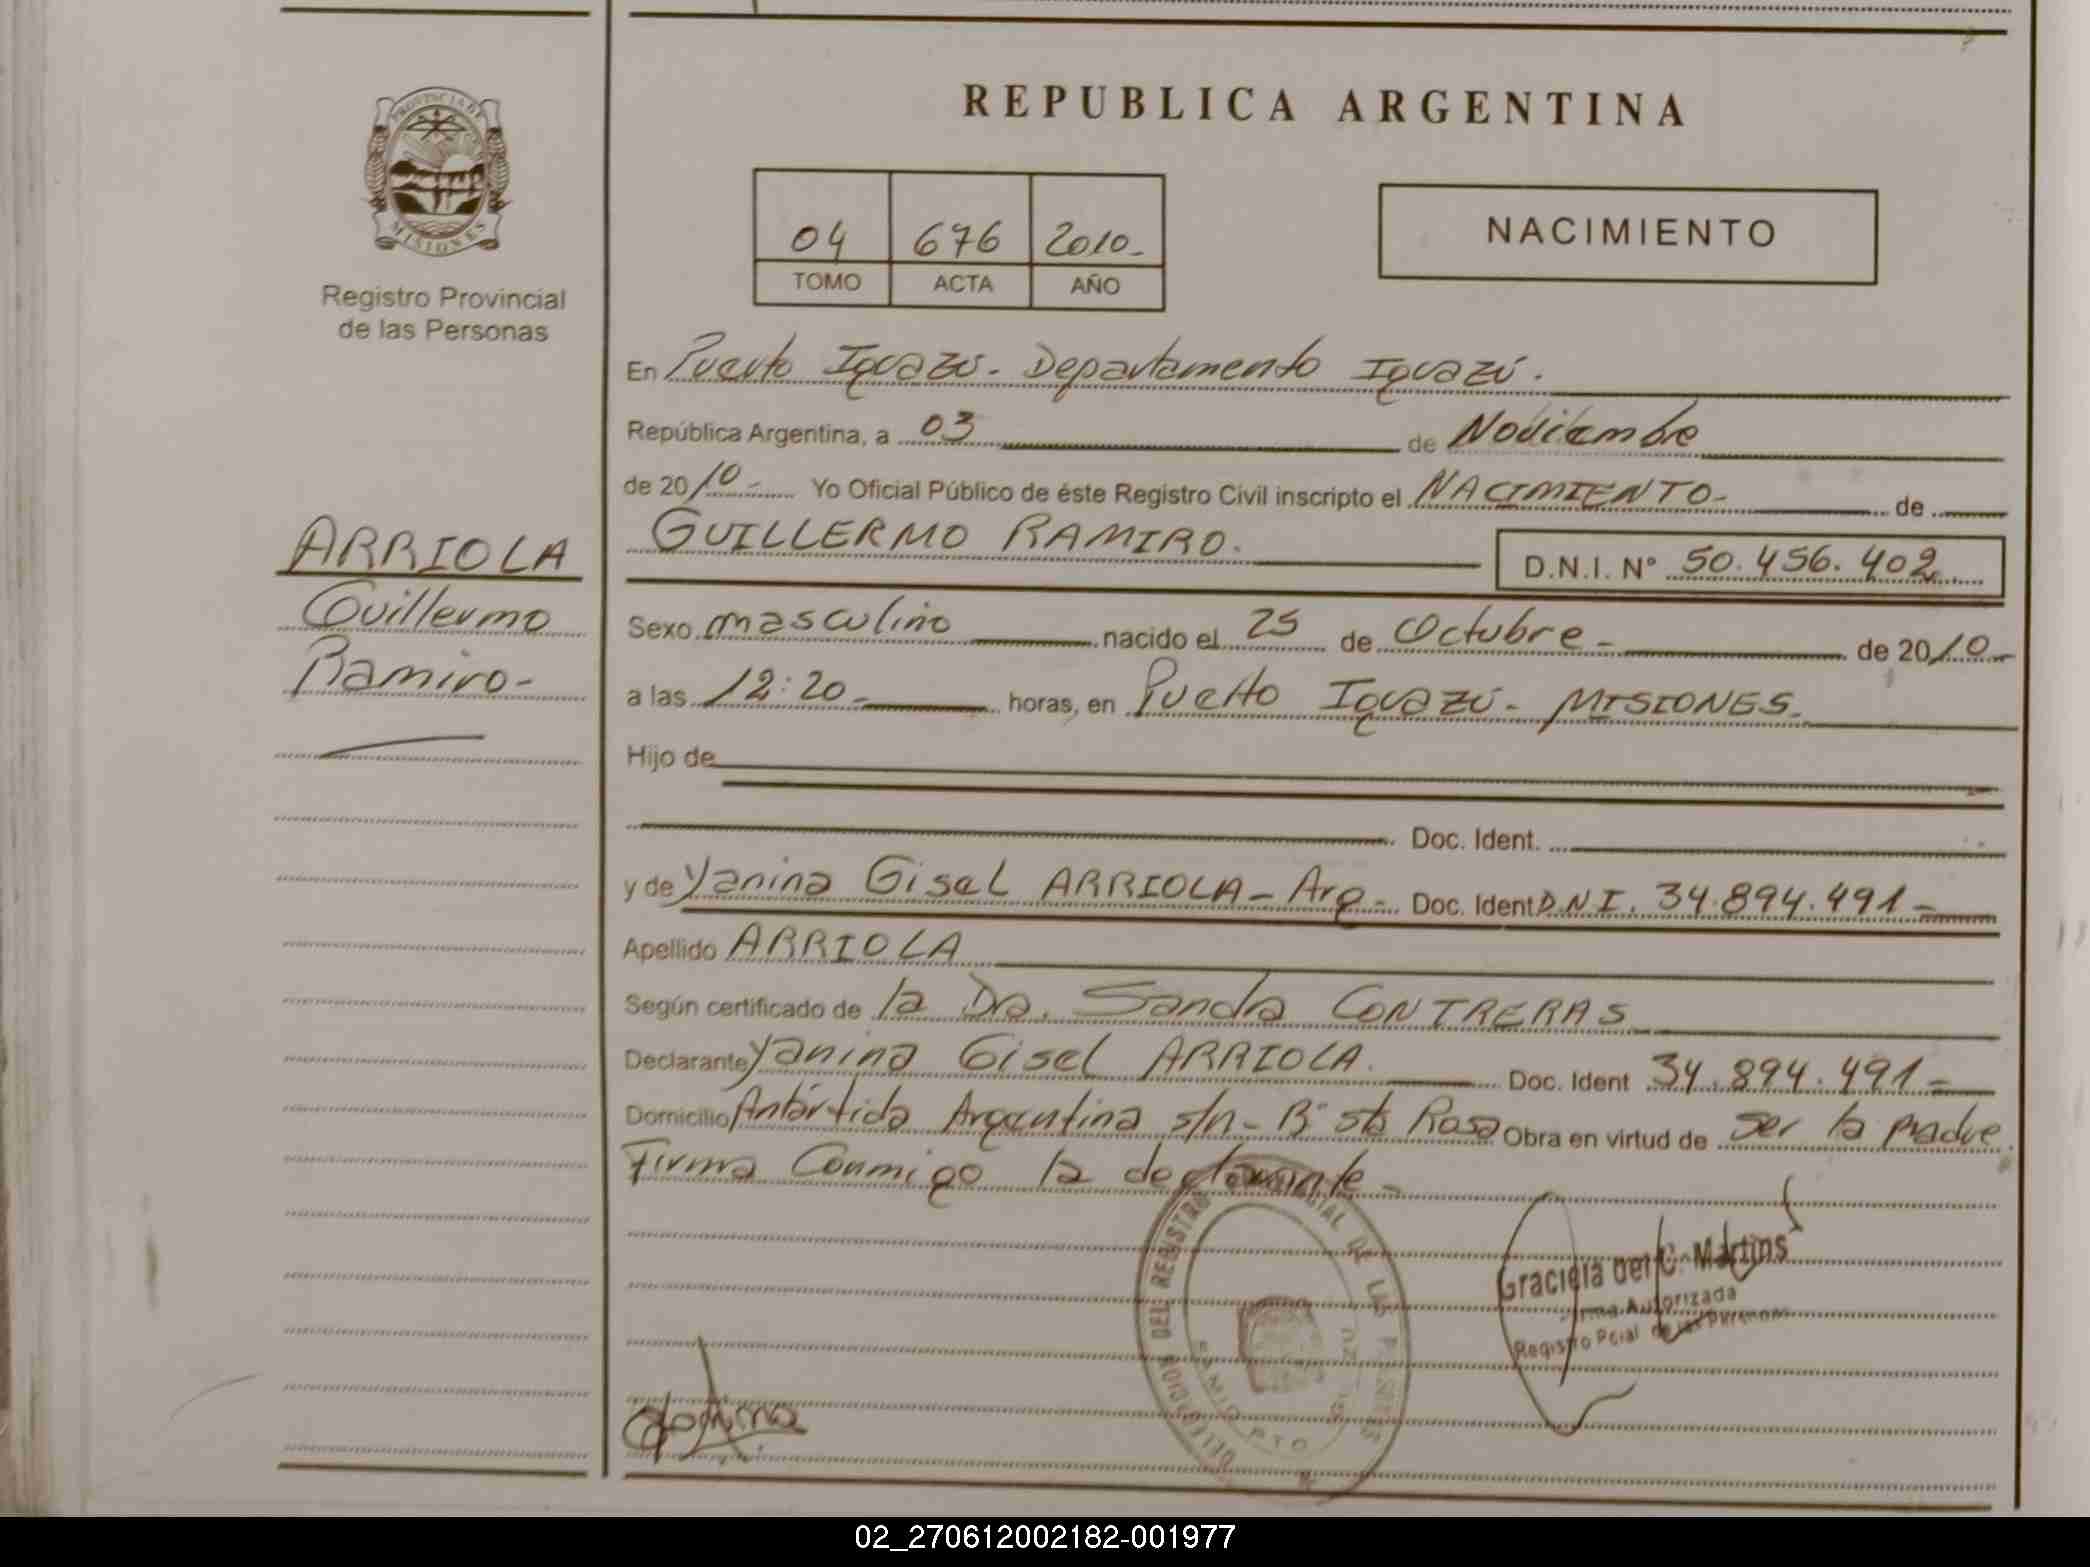 PROVINCIA DE
MISIONES
Registro Provincial
de las Personas
ARRIOLA
Guillermo
Ramiro-
REPUBLICA ARGENTINA
04 676 2010-
TOMO ACTA AÑO
NACIMIENTO
En Puerto Iguazú. Departamento Iguazú.
República Argentina, a 03 de Noviembre
de 2010- Yo Oficial Público de éste Registro Civil inscripto el NACIMIENTO- de
GUILLERMO RAMIRO.
D.N.I. N° 50.456.402
Sexo masculino nacido el 25 de Octubre - de 2010-
a las 12:20- horas, en Puerto Iguazú- MISIONES.
Hijo de
Doc. Ident.
y de Yanina Gisel ARRIOLA- Arg- Doc. Ident D.N.I. 34.894.491-
Apellido ARRIOLA
Según certificado de la Dra. Sandra CONTRERAS
Declarante Yanina Gisel ARRIOLA. Doc. Ident 34.894.491-
Domicilio Antártida Argentina s/n- B° sta Rosa Obra en virtud de ser la madre.
Firma Conmigo la declarante-
DELEGACION DEL REGISTRO DE LAS PERSONAS
Graciela del C. Martins
Firma Autorizada
Registro Pcial de las Personas
02_270612002182-001977